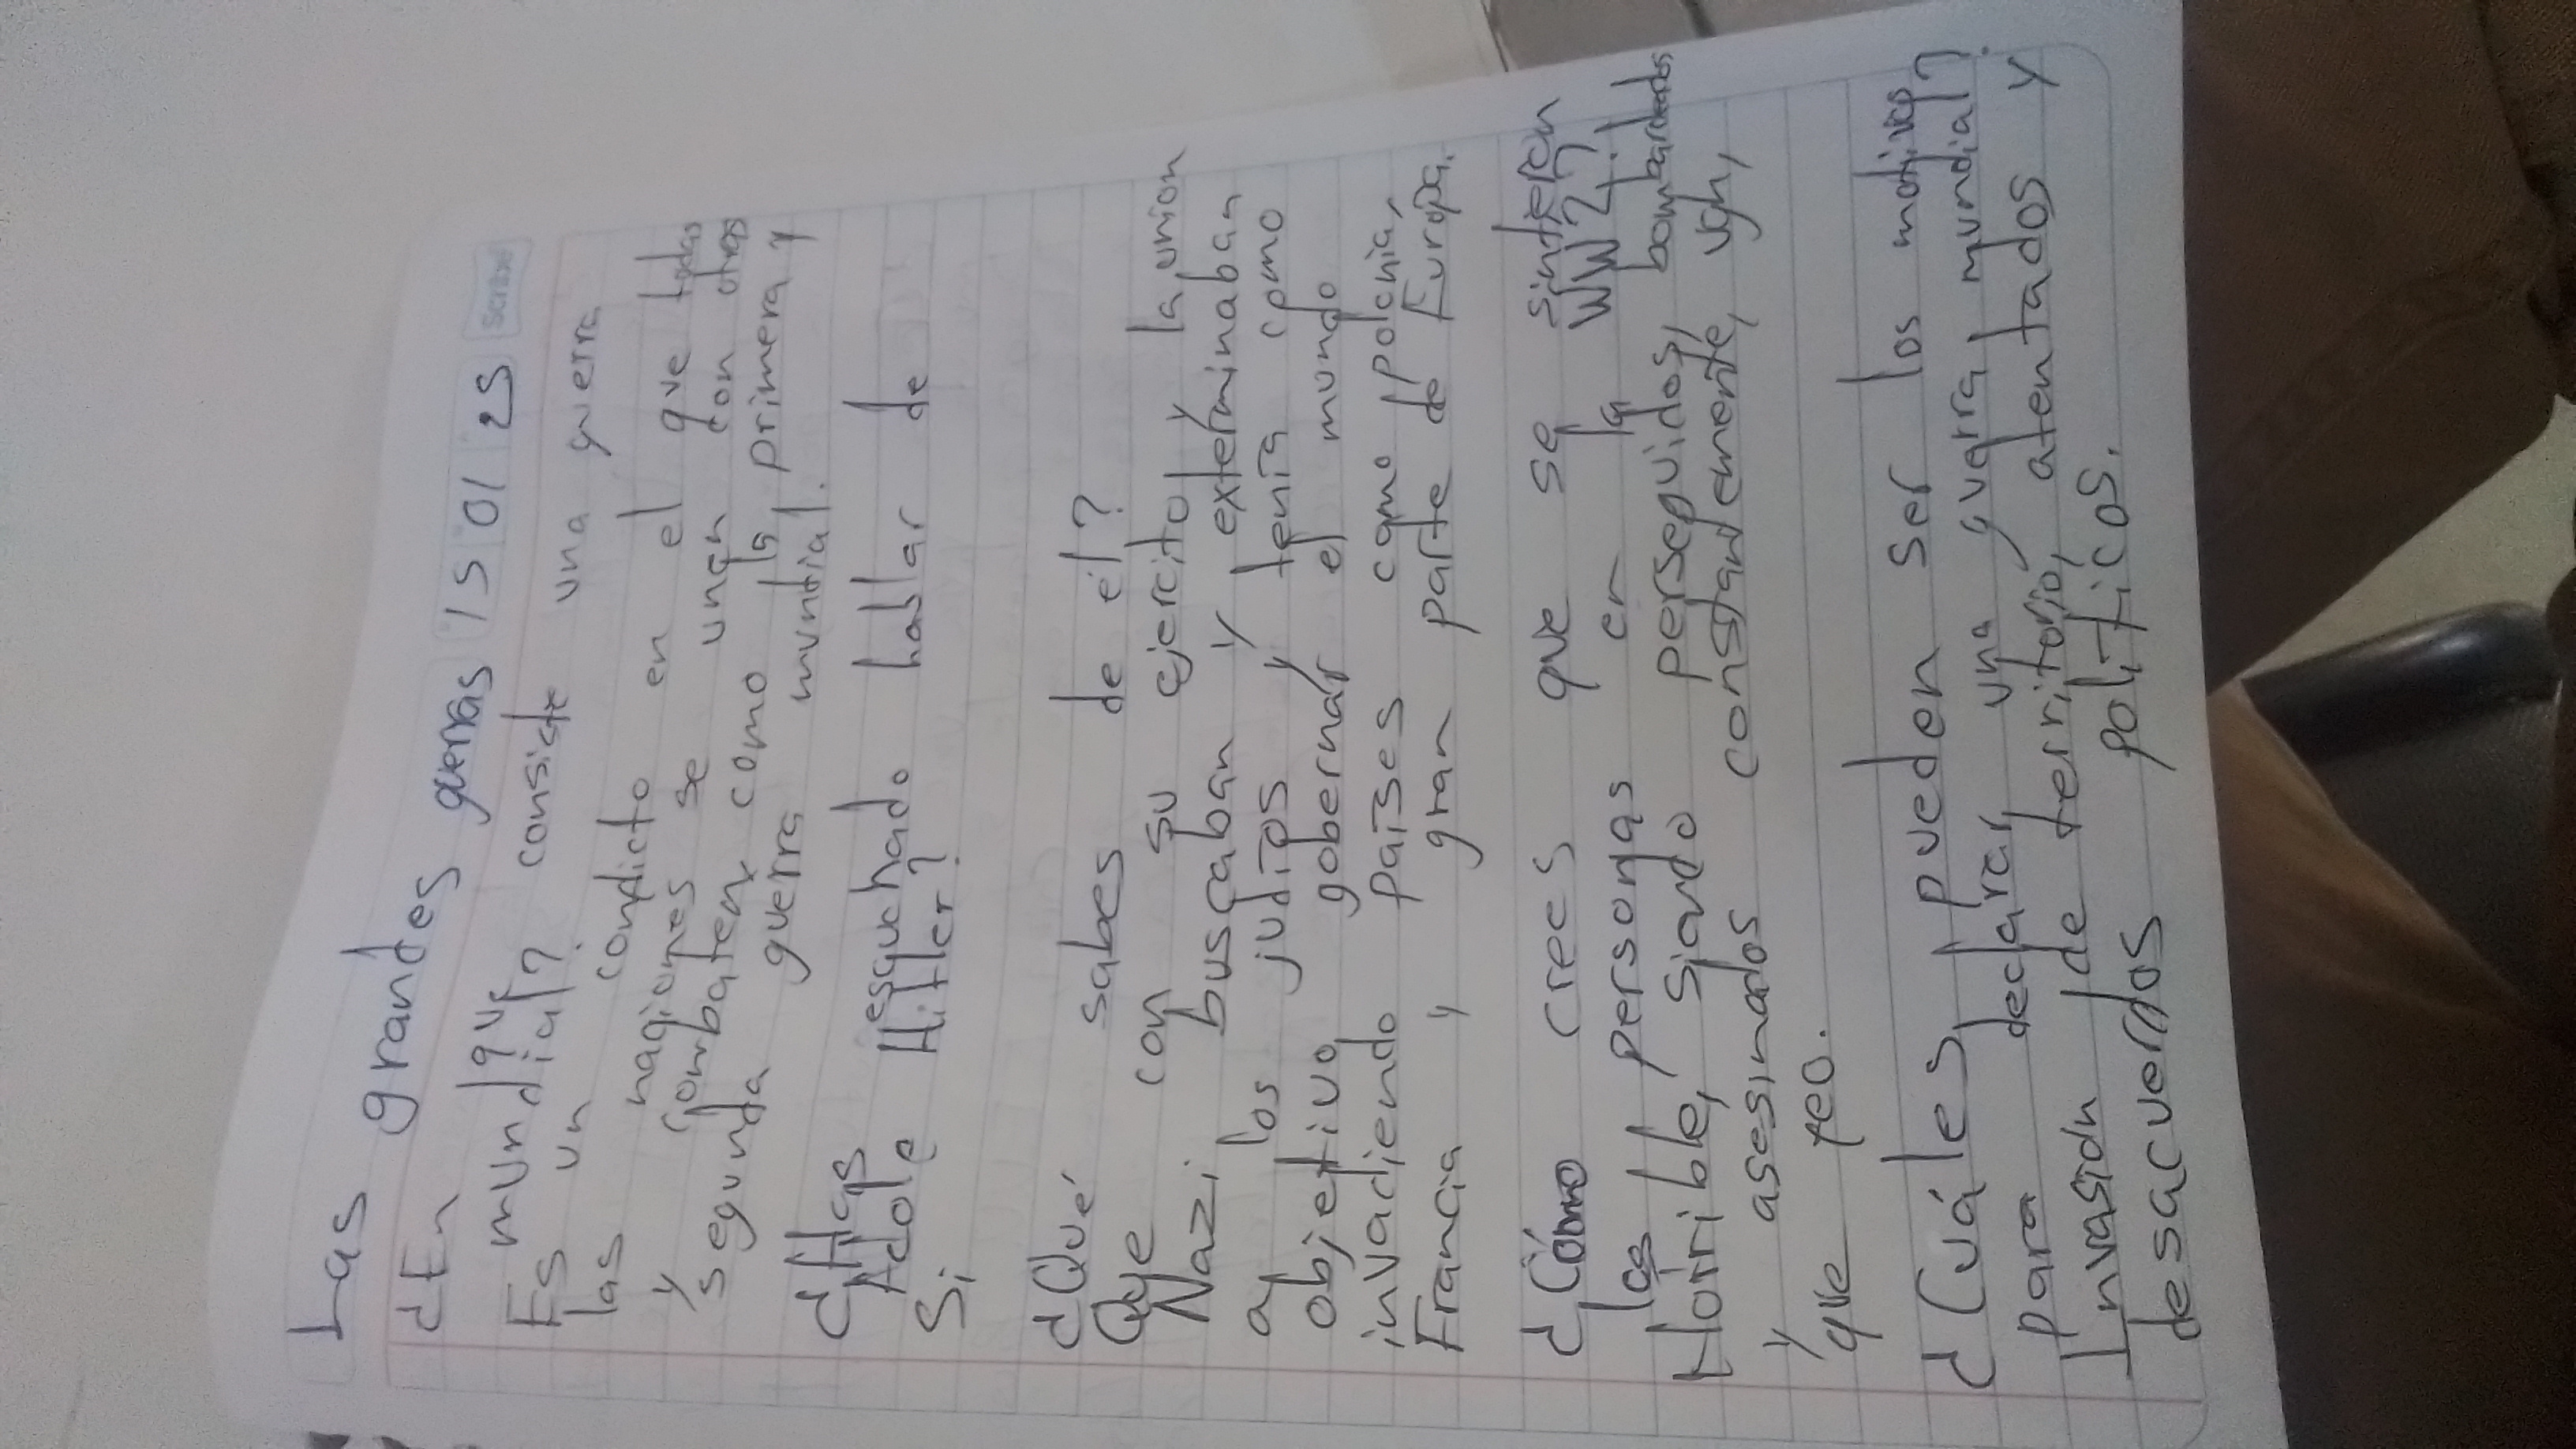 Las grandes guerras 15 01 25 Scribe
¿En qué consiste una guerra
mundial?
Es un condicto en el que todas
las nagiones se unan con otras
y combaten como la primera y
segunda guerra muntial.
¿Has esquchado hablar de
Adolf Hitler?
Si
¿Qué sabes de él?
Que con su ejercito y la union
Nazi buscaban y exterminaban
a los judíos y tenía como
objetivo gobernar el mundo
invadiendo países como polonia,
Francia y gran parte de Europa.
¿Cómo crees que se sintieron
las personas en la WW2?
Horrible, siando perseguidos, bombardeados
y asesinados constantemente, ugh,
que feo.
¿Cuáles pueden ser los motivos
para declarar una guerra mundial?
Invasión de territorio, atentados y
desacuerdos políticos.